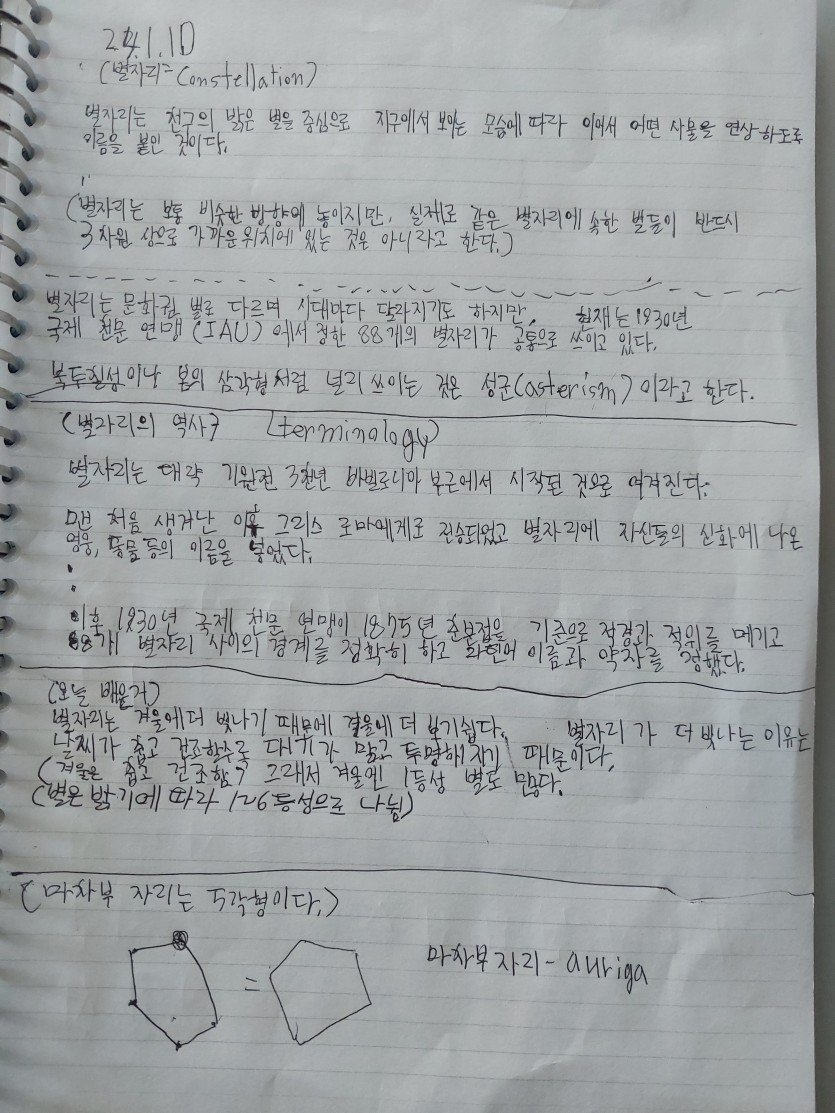 24.1.10
(별자리=Constellation)
별자리는 천구의 밝은 별을 중심으로 지구에서 보이는 모습에 따라 이어서 어떤 사물을 연상하도록
이름을 붙인 것이다.
(별자리는 보통 비슷한 방향에 놓이지만, 실제로 같은 별자리에 속한 별들이 반드시
3차원 상으로 가까운 위치에 있는 것은 아니라고 한다.)
별자리는 문화권 별로 다르며 시대마다 달라지기도 하지만, 현재는 1930년
국제 천문 연맹(IAU)에서 정한 88개의 별자리가 공통으로 쓰이고 있다.
북두칠성이나 봄의 삼각형처럼 널리 쓰이는 것은 성군(asterism)이라고 한다.
(별자리의 역사) (terminology)
별자리는 대략 기원전 3천년 바빌로니아 부근에서 시작된 것으로 여겨진다.
맨 처음 생겨난 이후 그리스 로마에게로 전승되었고 별자리에 자신들의 신화에 나온
영웅, 동물 등의 이름을 넣었다.
이후 1930년 국제 천문 연맹이 1875년 춘분점을 기준으로 적경과 적위를 메기고
88개 별자리 사이의 경계를 정확히 하고 라틴어 이름과 약자를 정했다.
(오늘 배운거)
별자리는 겨울에 더 빛나기 때문에 겨울에 더 보기쉽다. 별자리가 더 빛나는 이유는
날씨가 춥고 건조할수록 대기가 맑고 투명해지기 때문이다.
(겨울은 춥고 건조함) 그래서 겨울엔 1등성 별도 많다.
(별은 밝기에 따라 1~6등성으로 나뉨)
(마차부 자리는 5각형이다.)
=
마차부 자리 - auriga